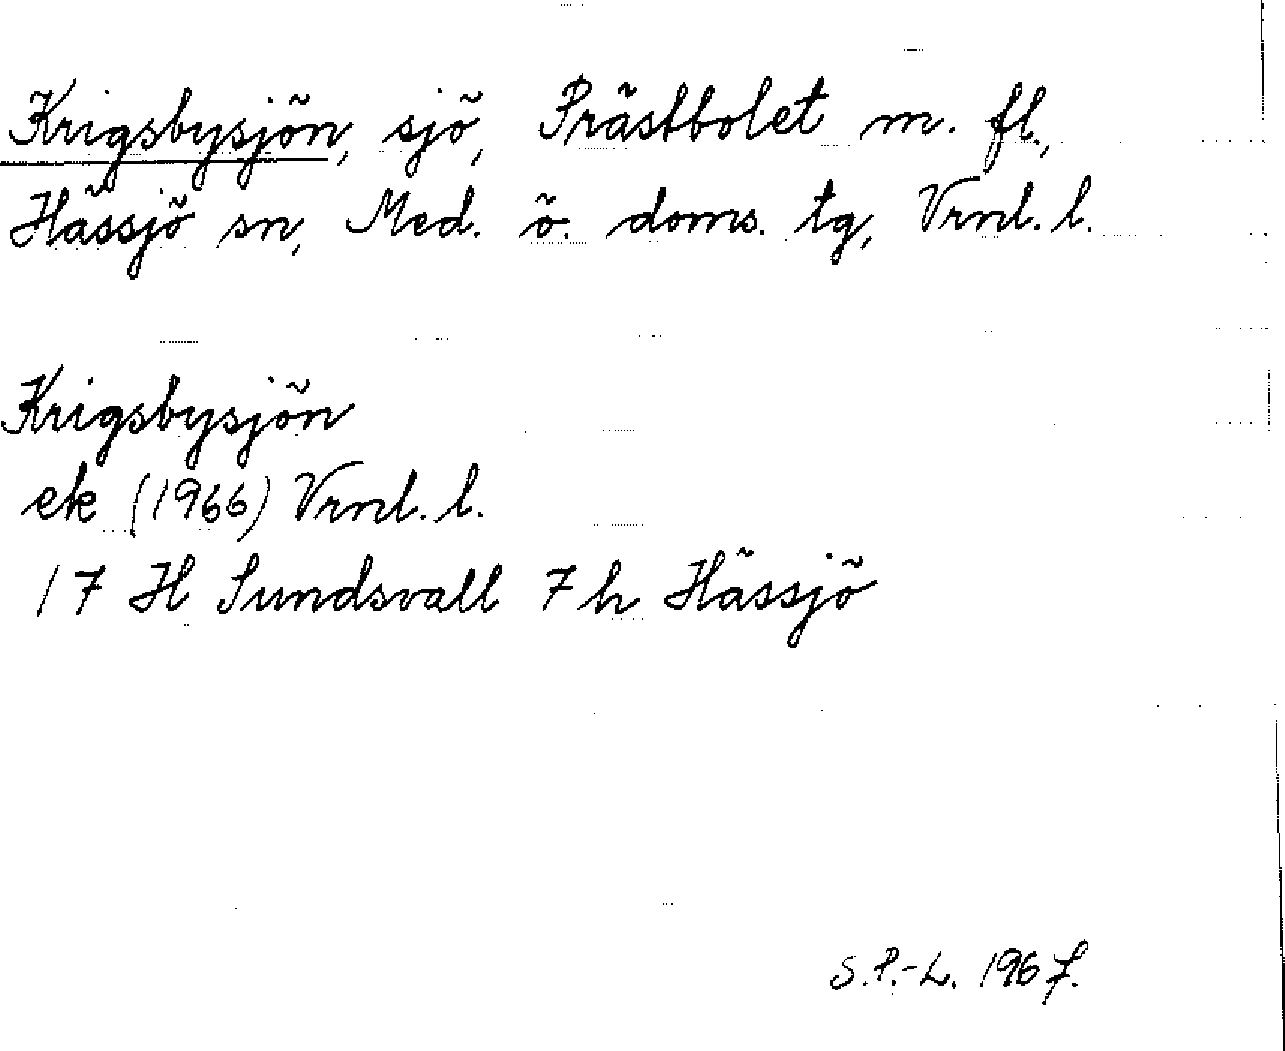 Krigsbysjön, sjö, Prästbolet m. fl.,
Hässjö sn, Med. ö. doms. tg, Vrnl. l.
Krigsbysjön
ek (1966) Vrnl. l.
17 H Sundsvall 7 h Hässjö
S.P.-L. 1967.